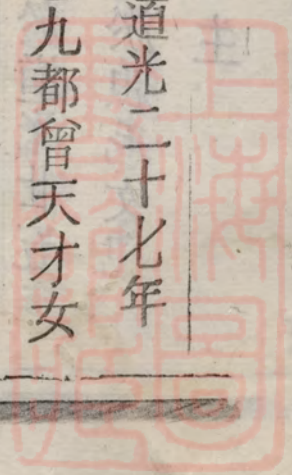 道光二十七年
九都曾天才女